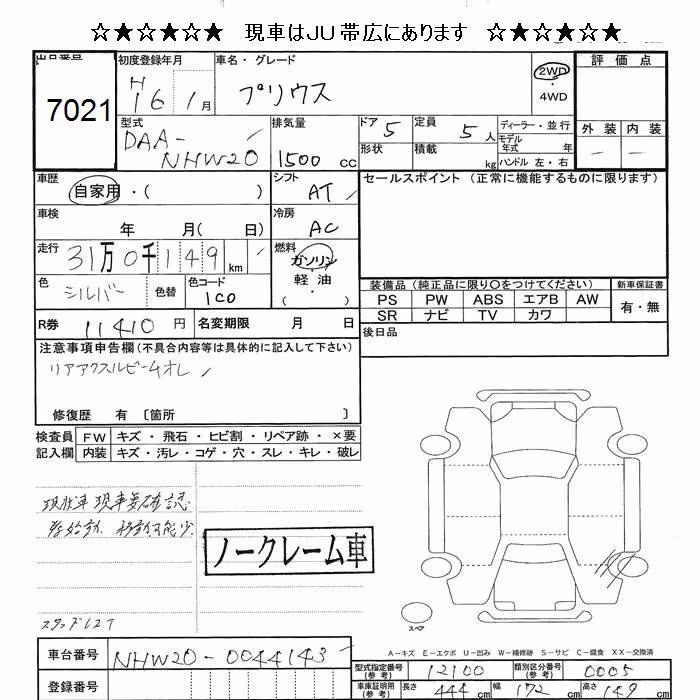 ☆★☆★☆★ 現車はJU帯広にあります ☆★☆★☆★
出品番号 初度登録年月 車名・グレード 評価点
7021 H16 1月 プリウス 2WD・4WD
型式 排気量 ドア 5 定員 5人 ディーラー・並行 外装 内装
DAA-NHW20 1500cc 形状 積載 kg モデル年式 年 ハンドル 左・右 — —
車歴 シフト セールスポイント(正常に機能するものに限ります)
自家用・( ) AT
車検 年 月( 日) 冷房 AC
走行 31万0千149km 燃料 ガソリン・軽油・( )
色 シルバー 色替 色コード 1C0 装備品(純正品に限り○をつけてください) 新車保証書
PS PW ABS エアB AW 有・無
SR ナビ TV カワ
R券 11410円 名変期限 月 日 後日品
注意事項申告欄(不具合内容等は具体的に記入して下さい)
リアアクスルビームオレ
修復歴 有〔箇所 〕
検査員 FW キズ・飛石・ヒビ割・リペア跡・×要
記入欄 内装 キズ・汚レ・コゲ・穴・スレ・キレ・破レ
現状車 現車要確認
ノークレーム車
スペア
A-キズ E-エクボ U-凹み W-補修跡 S-サビ C-腐食 XX-交換済
車台番号 NHW20-0044143
型式指定番号(参考) 12100 類別区分番号(参考) 0005
登録番号 車庫証明用(参考) 長さ 444cm 幅 172cm 高さ 149cm